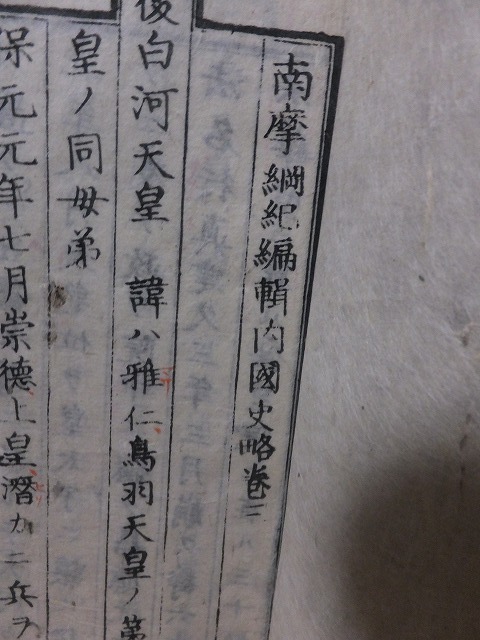 南摩綱紀編輯內國史略卷三
後白河天皇 諱ハ雅仁鳥羽天皇ノ第
皇ノ同母弟
保元元年七月崇德上皇潛カニ兵ヲ